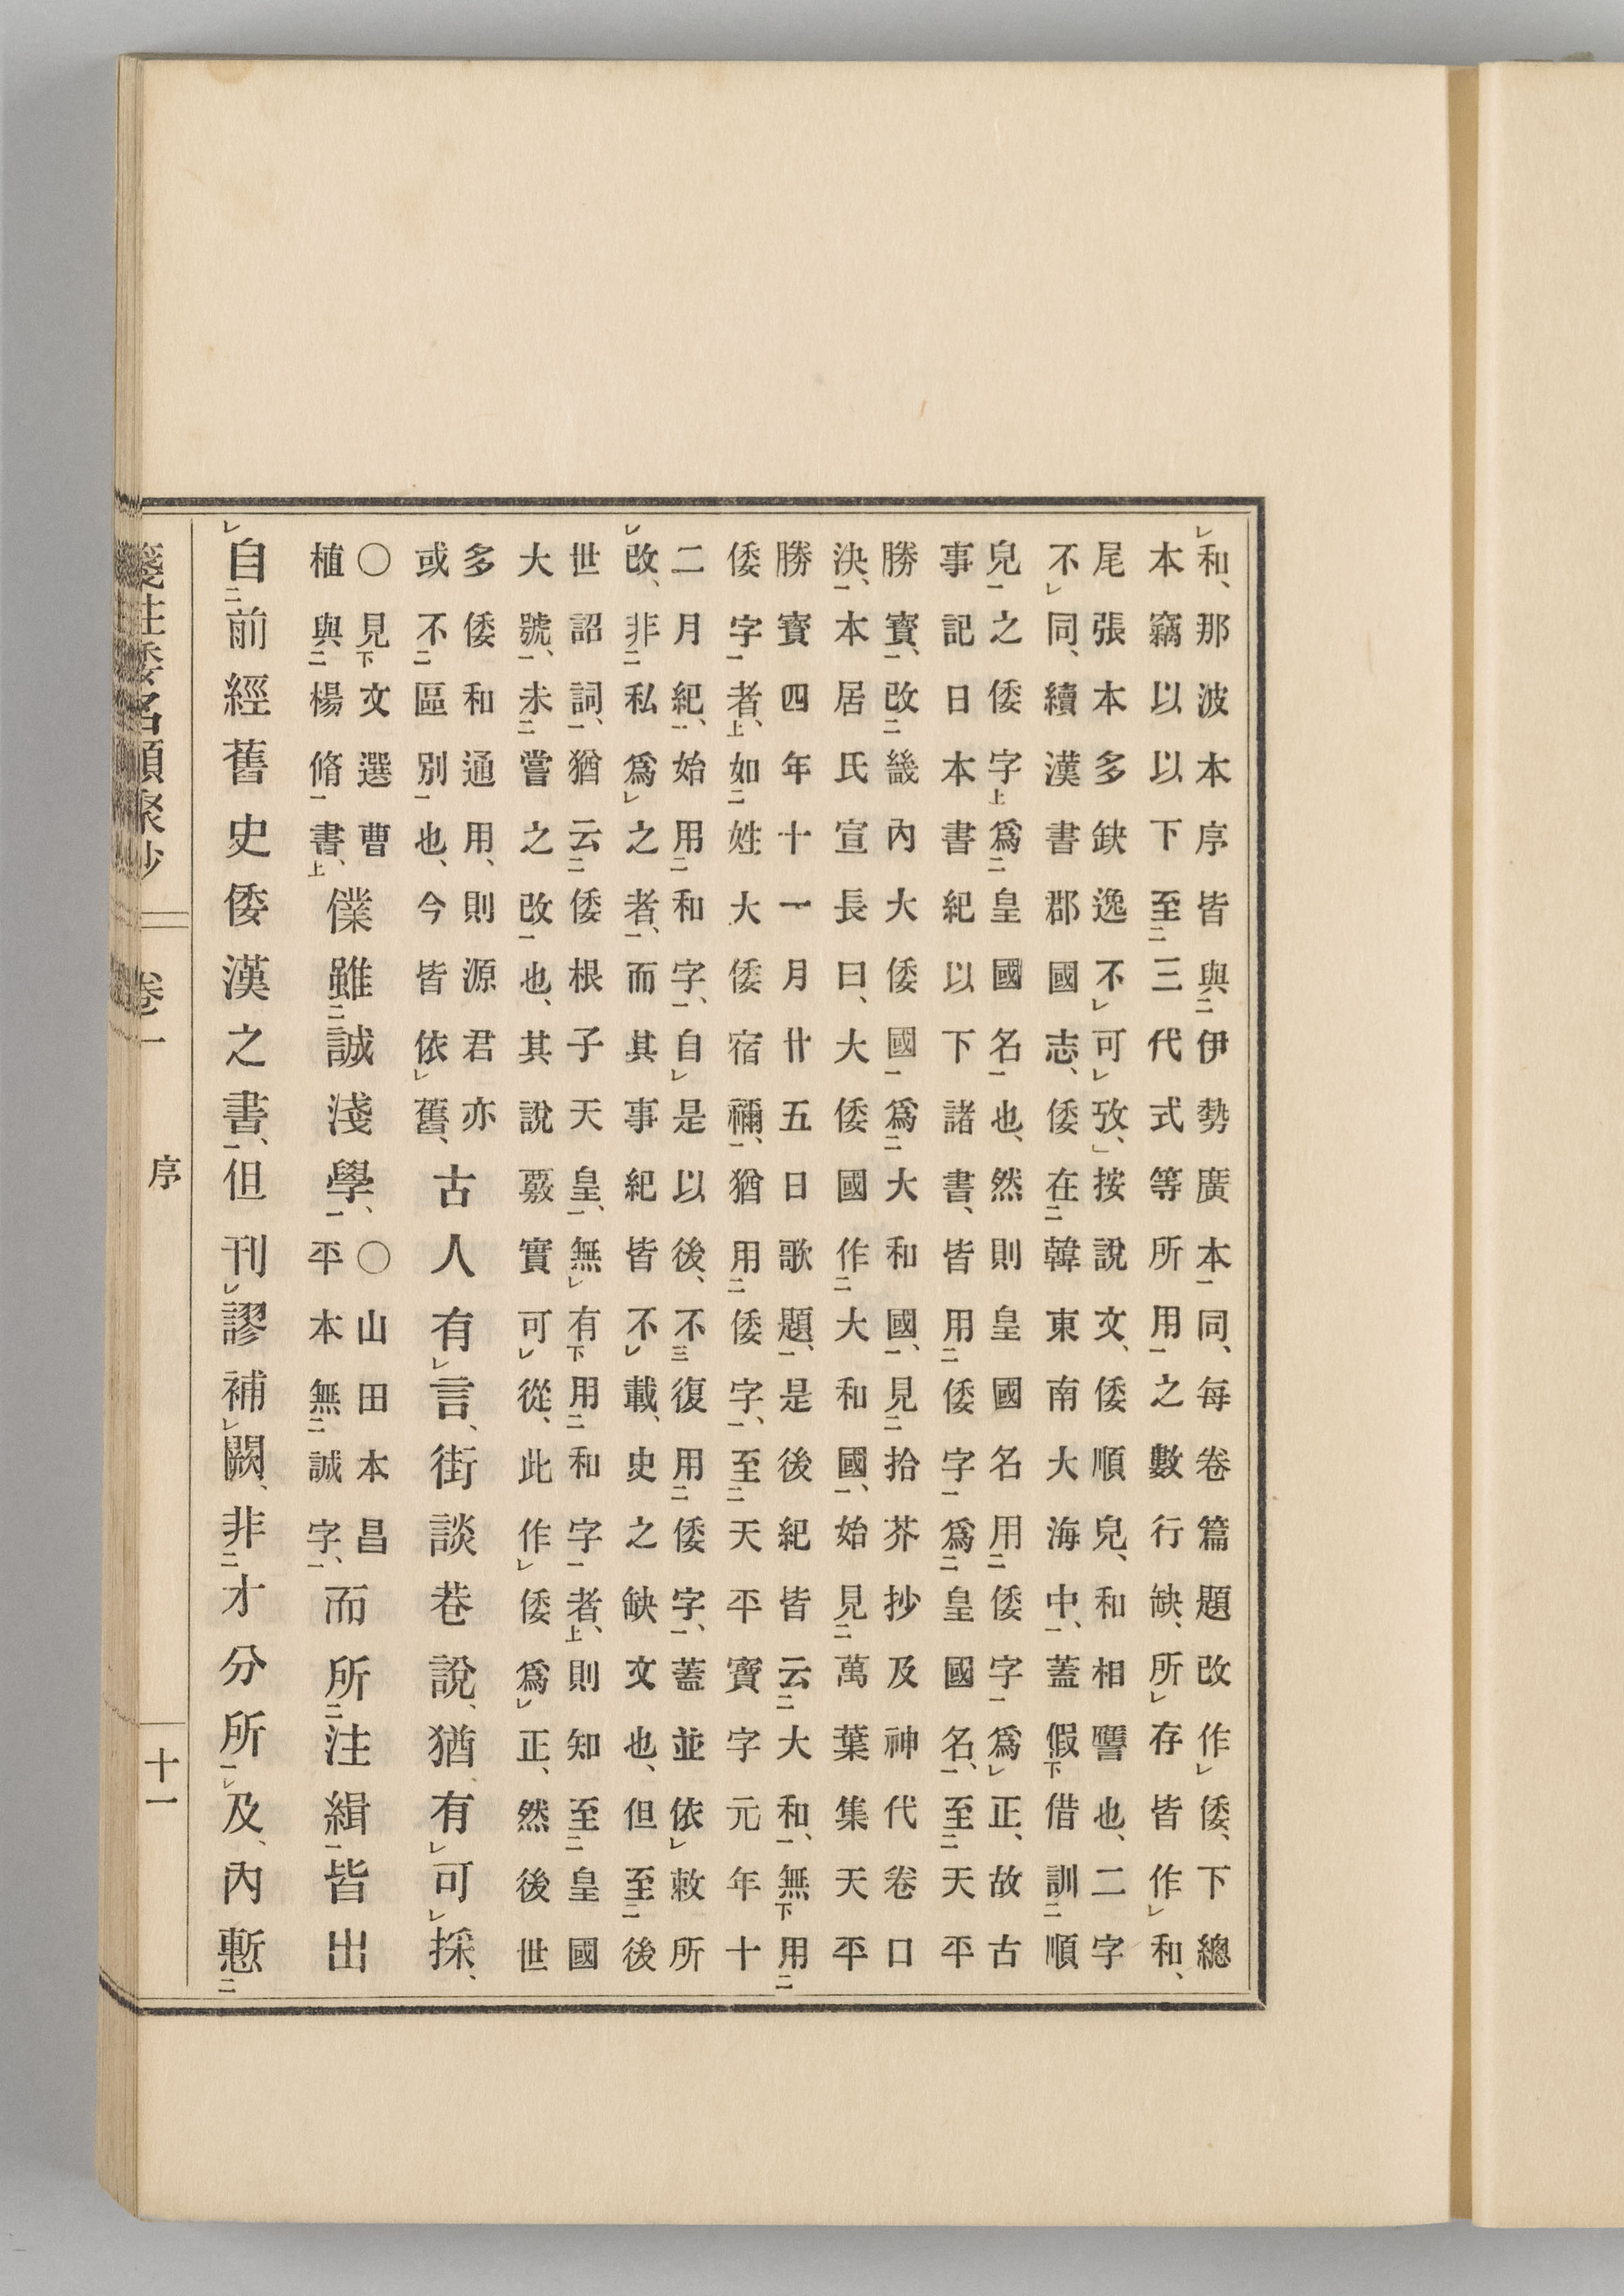 和、那波本序皆與伊勢廣本同、每卷篇題改作倭、下總
本竊以以下至三代式等所用之數行缺、所存皆作和、
尾張本多缺逸不可攷、」按說文、倭順皃、和相譍也、二字
不同、續漢書郡國志、倭在韓東南大海中、蓋假借訓順
皃之倭字爲皇國名也、然則皇國名用倭字爲正、故古
事記日本書紀以下諸書、皆用倭字爲皇國名、至天平
勝寳、改畿內大倭國爲大和國、見拾芥抄及神代卷口
決、本居氏宣長曰、大倭國作大和國、始見萬葉集天平
勝寳四年十一月廿五日歌題、是後紀皆云大和、無用
倭字者、如姓大倭宿禰、猶用倭字、至天平寳字元年十
二月紀、始用和字、自是以後、不復用倭字、蓋並依敕所
改、非私爲之者、而其事紀皆不載、史之缺文也、但至後
世詔詞、猶云倭根子天皇、無有用和字者、則知至皇國
大號、未嘗之改也、其說覈實可從、此作倭爲正、然後世
多倭和通用、則源君亦
或不區別也、今皆依舊、
古人有言、街談巷說、猶有可採、
○見文選曹
植與楊脩書、
僕雖誠淺學、
○山田本昌
平本無誠字、
而所注緝皆出
自前經舊史倭漢之書、但刊謬補闕、非才分所及、內慙
箋注倭名類聚抄 卷一 序 十一